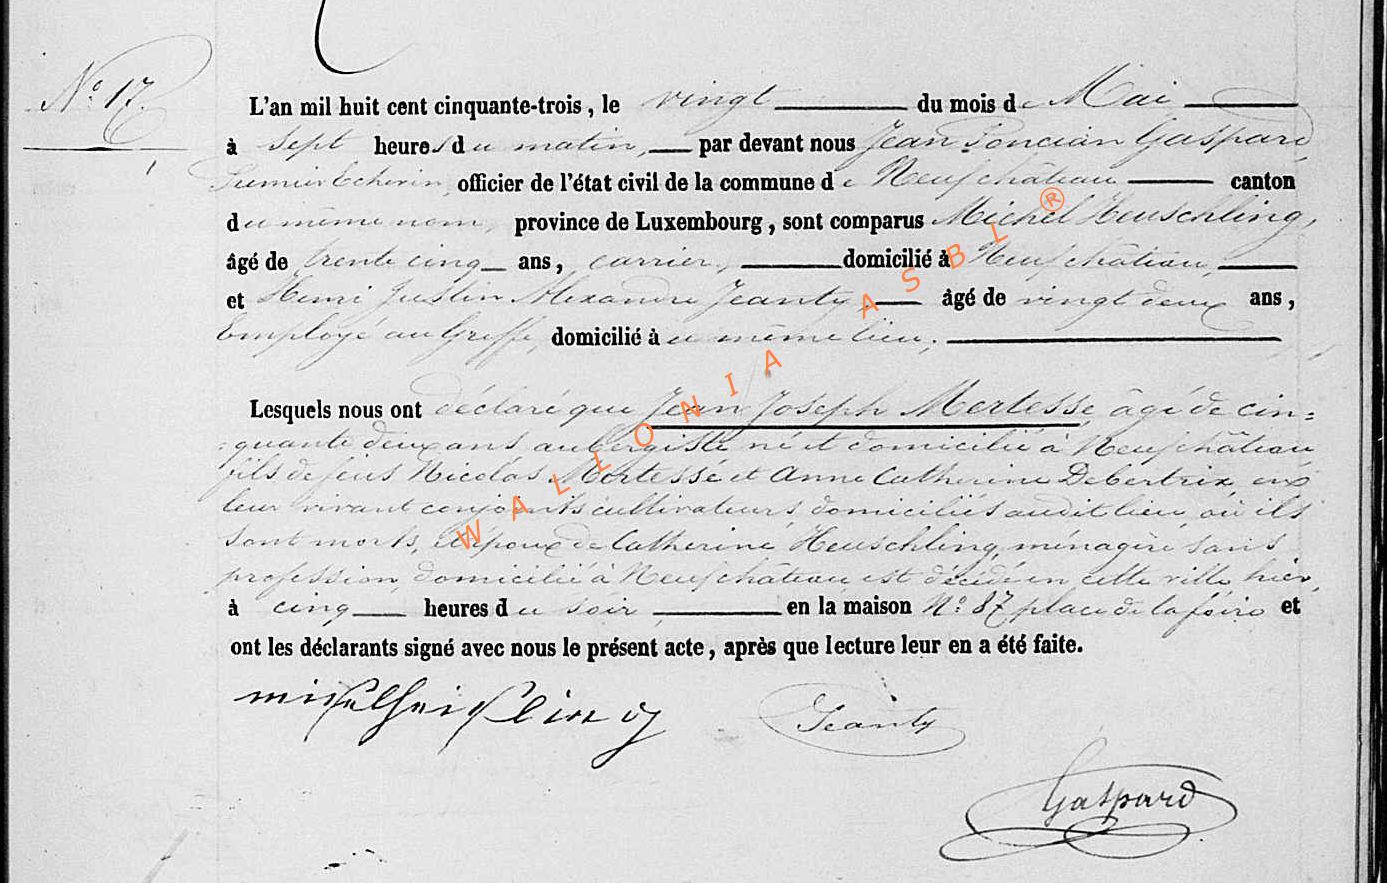 N° 17.
L'an mil huit cent cinquante-trois, le vingt du mois de Mai
à sept heures du matin, par devant nous Jean Poncian Gaspard
Premier Echevin officier de l'état civil de la commune de Neufchâteau canton
du même nom, province de Luxembourg, sont comparus Michel Heuschling,
âgé de trente cinq ans, carrier, domicilié à Neufchâteau,
et Henri Justin Alexandre Jeanty, âgé de vingt deux ans,
Employé au Greffe, domicilié à u même lieu;
Lesquels nous ont déclaré que Jean Joseph Mertesse, âgé de cin=
=quante deux ans, aubergiste né et domicilié à Neufchâteau
fils de feus Nicolas Mertesse et Anne Catherine Debertrix en
leur vivant conjoints cultivateurs domiciliés audit lieu où ils
sont morts, époux de Catherine Heuschling, ménagère sans
profession, domicilié à Neufchâteau est décédé en cette ville hier,
à cinq heures du soir, en la maison N° 87 place de la foire et
ont les déclarants signé avec nous le présent acte, après que lecture leur en a été faite.
Jeanty
Gaspard
WALLONIA ASBL ®